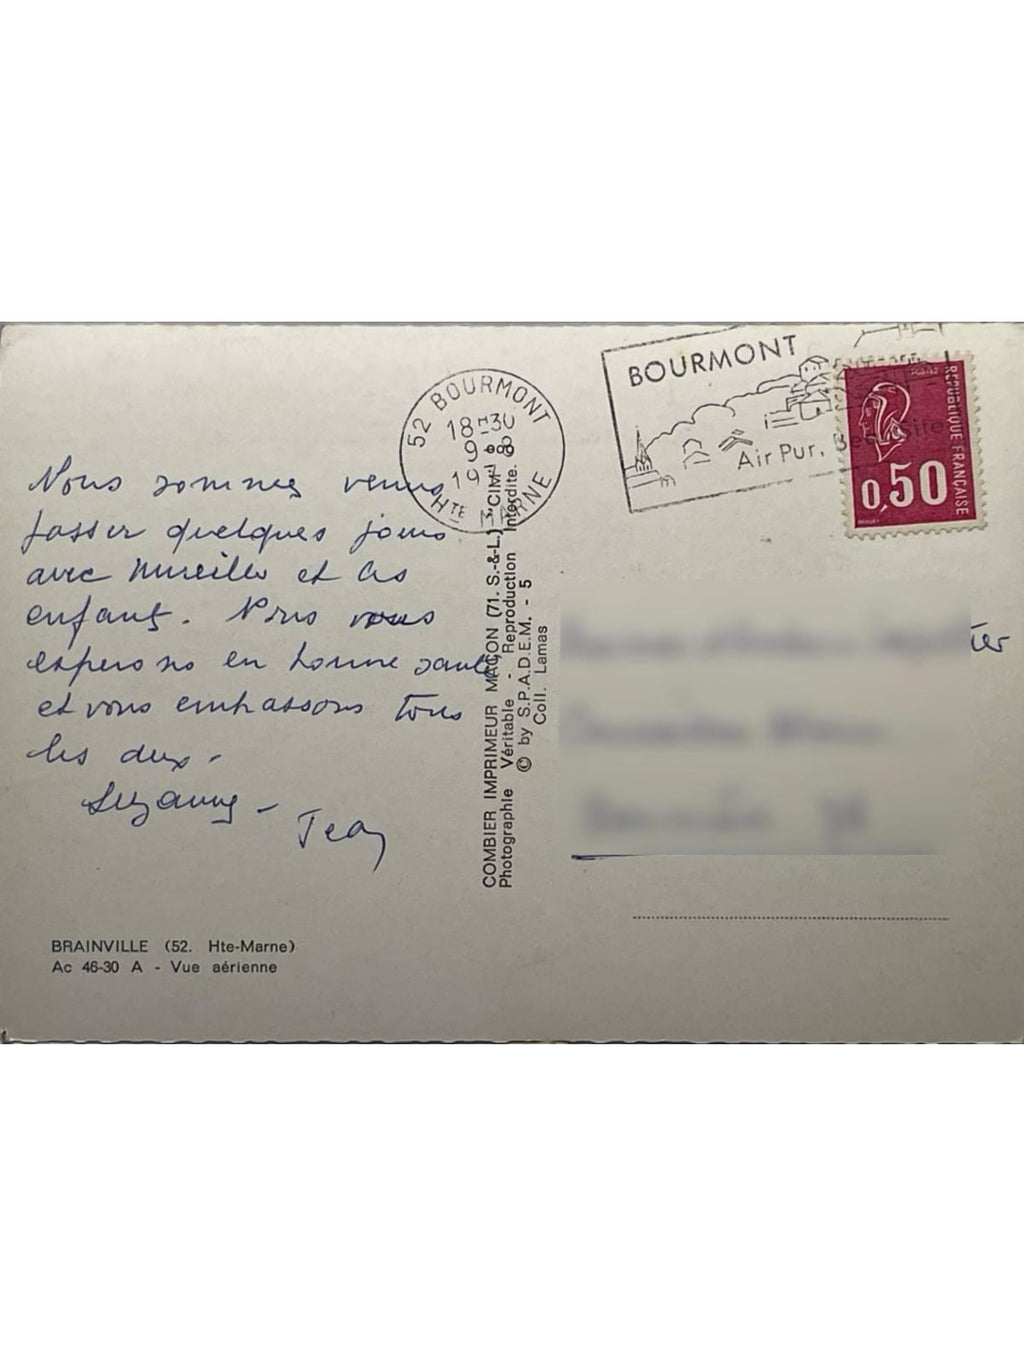 Nous sommes venus
passer quelques jours
avec Mireille et les
enfants. Nous vous
esperons en bonne santé
et vous embrassons tous
les deux -
Suzanne -
Jean
BRAINVILLE (52. Hte-Marne)
Ac 46-30 A - Vue aérienne
COMBIER IMPRIMEUR MAÇON (71. S.-&-L.) "CIM"
Photographie Véritable - Reproduction Interdite.
© by S.P.A.D.E.M. - 5
Coll. Lamas
52 BOURMONT
18H30
9-8
19
HTE MARNE
BOURMONT
Air Pur,
POSTES
RÉPUBLIQUE FRANÇAISE
0,50
ier